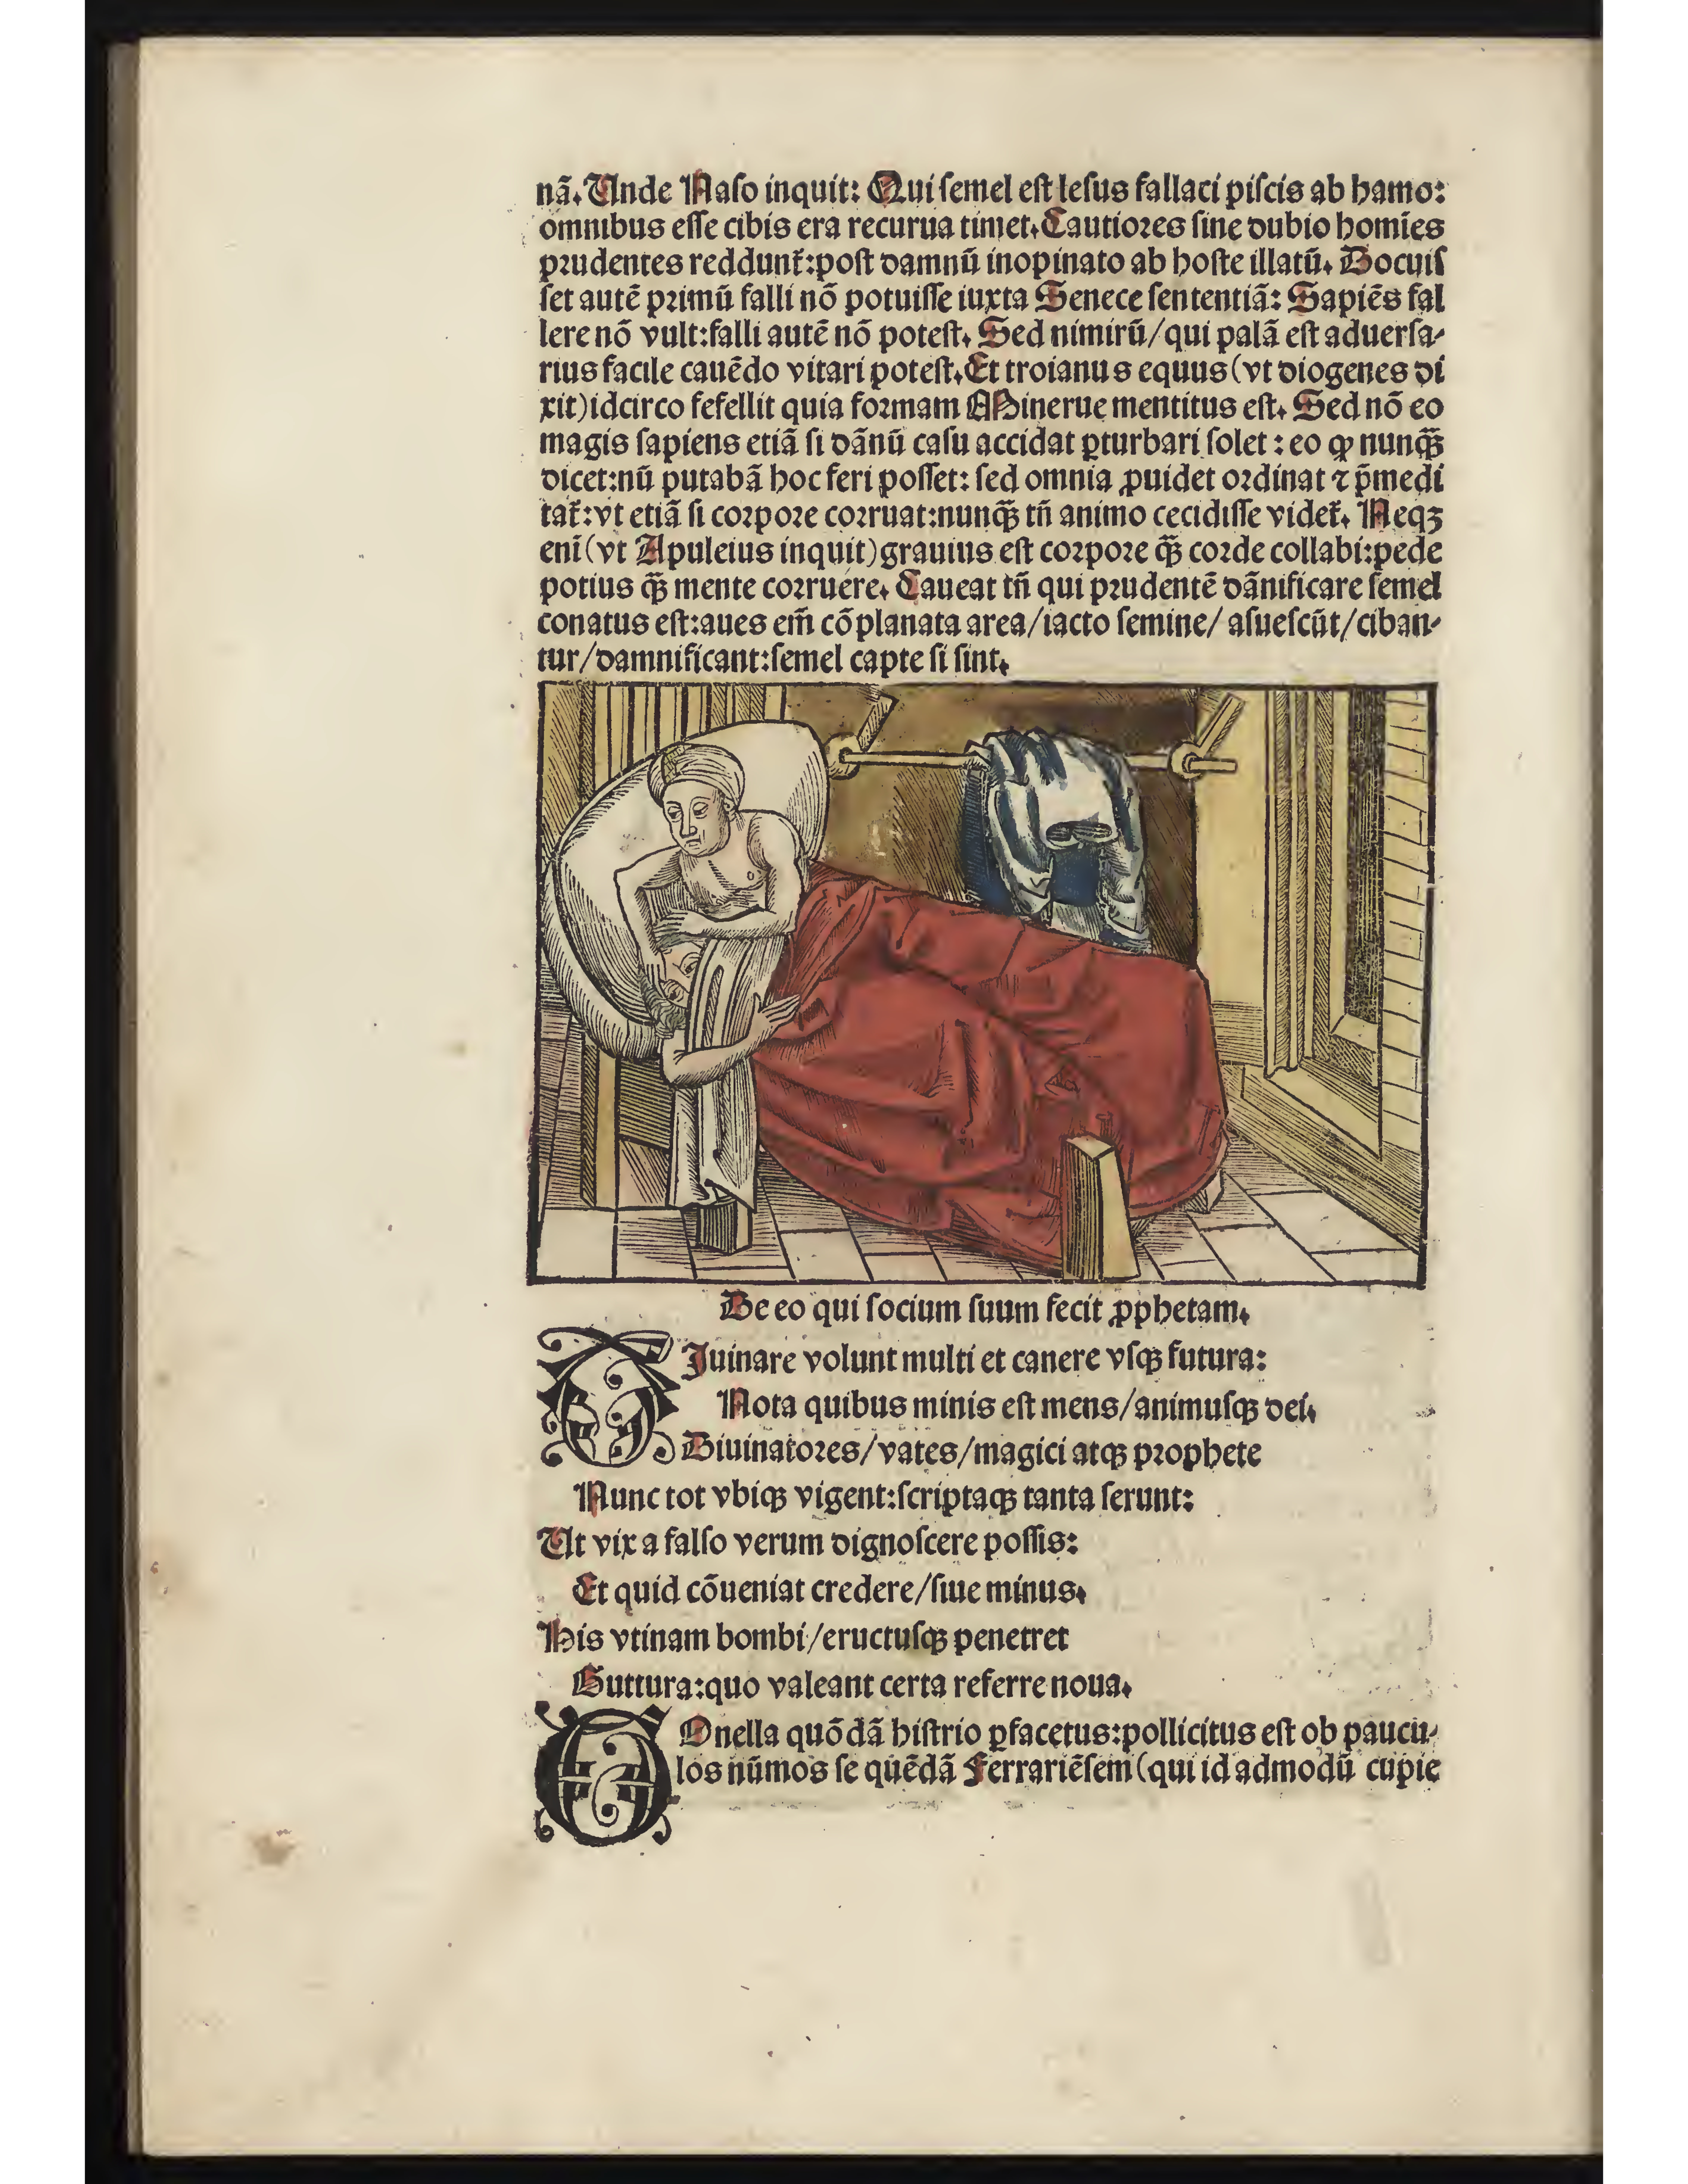 nã. Unde Naſo inquit: Qui ſemel eſt leſus fallaci piſcis ab hamo:
omnibus eſſe cibis era recurua timet. Cautiores ſine dubio homĩes
prudentes reddunt᷑: poſt damnũ inopinato ab hoſte illatũ. Docuiſ
ſet autẽ primũ falli nõ potuiſſe iuxta Senece ſententiã: Sapiẽs fal
lere nõ vult: falli autẽ nõ poteſt. Sed nimirũ/ qui palã eſt aduerſa-
rius facile cauẽdo vitari poteſt. Et troianus equus (vt diogenes di
xit) idcirco fefellit quia formam Minerue mentitus eſt. Sed nõ eo
magis ſapiens etiã ſi dãnũ caſu accidat ꝑturbari ſolet: eo ꝙ nunꝗ̃
dicet: nũ putabã hoc feri poſſet: ſed omnia ꝓuidet ordinat ⁊ p̃medi
tat᷑: vt etiã ſi corpore corruat: nunꝗ̃ tñ animo cecidiſſe videt᷑. Neqꝫ
eni (vt Apuleius inquit) grauius eſt corpore ꝗ̃ corde collabi: pede
potius ꝗ̃ mente corruere. Caueat tñ qui prudentẽ dãnificare ſemel
conatus eſt: aues em̃ cõplanata area/ iacto ſemine/ aſueſcũt/ ciban-
tur/ damnificant: ſemel capte ſi ſint.
De eo qui ſocium ſuum fecit ꝓphetam.
DIuinare volunt multi et canere vſqꝫ futura:
Nota quibus minis eſt mens/ animuſqꝫ dei.
Diuinatores/ vates/ magici atqꝫ prophete
Nunc tot vbiqꝫ vigent: ſcriptaqꝫ tanta ſerunt:
Ut vix a falſo verum dignoſcere poſſis:
Et quid cõueniat credere/ ſiue minus.
His vtinam bombi/ eructuſqꝫ penetret
Guttura: quo valeant certa referre noua.
GOnella quõdã hiſtrio ꝑfacetus: pollicitus eſt ob paucu-
los nũmos ſe quẽdã Ferrariẽſem (qui id admodũ cupie